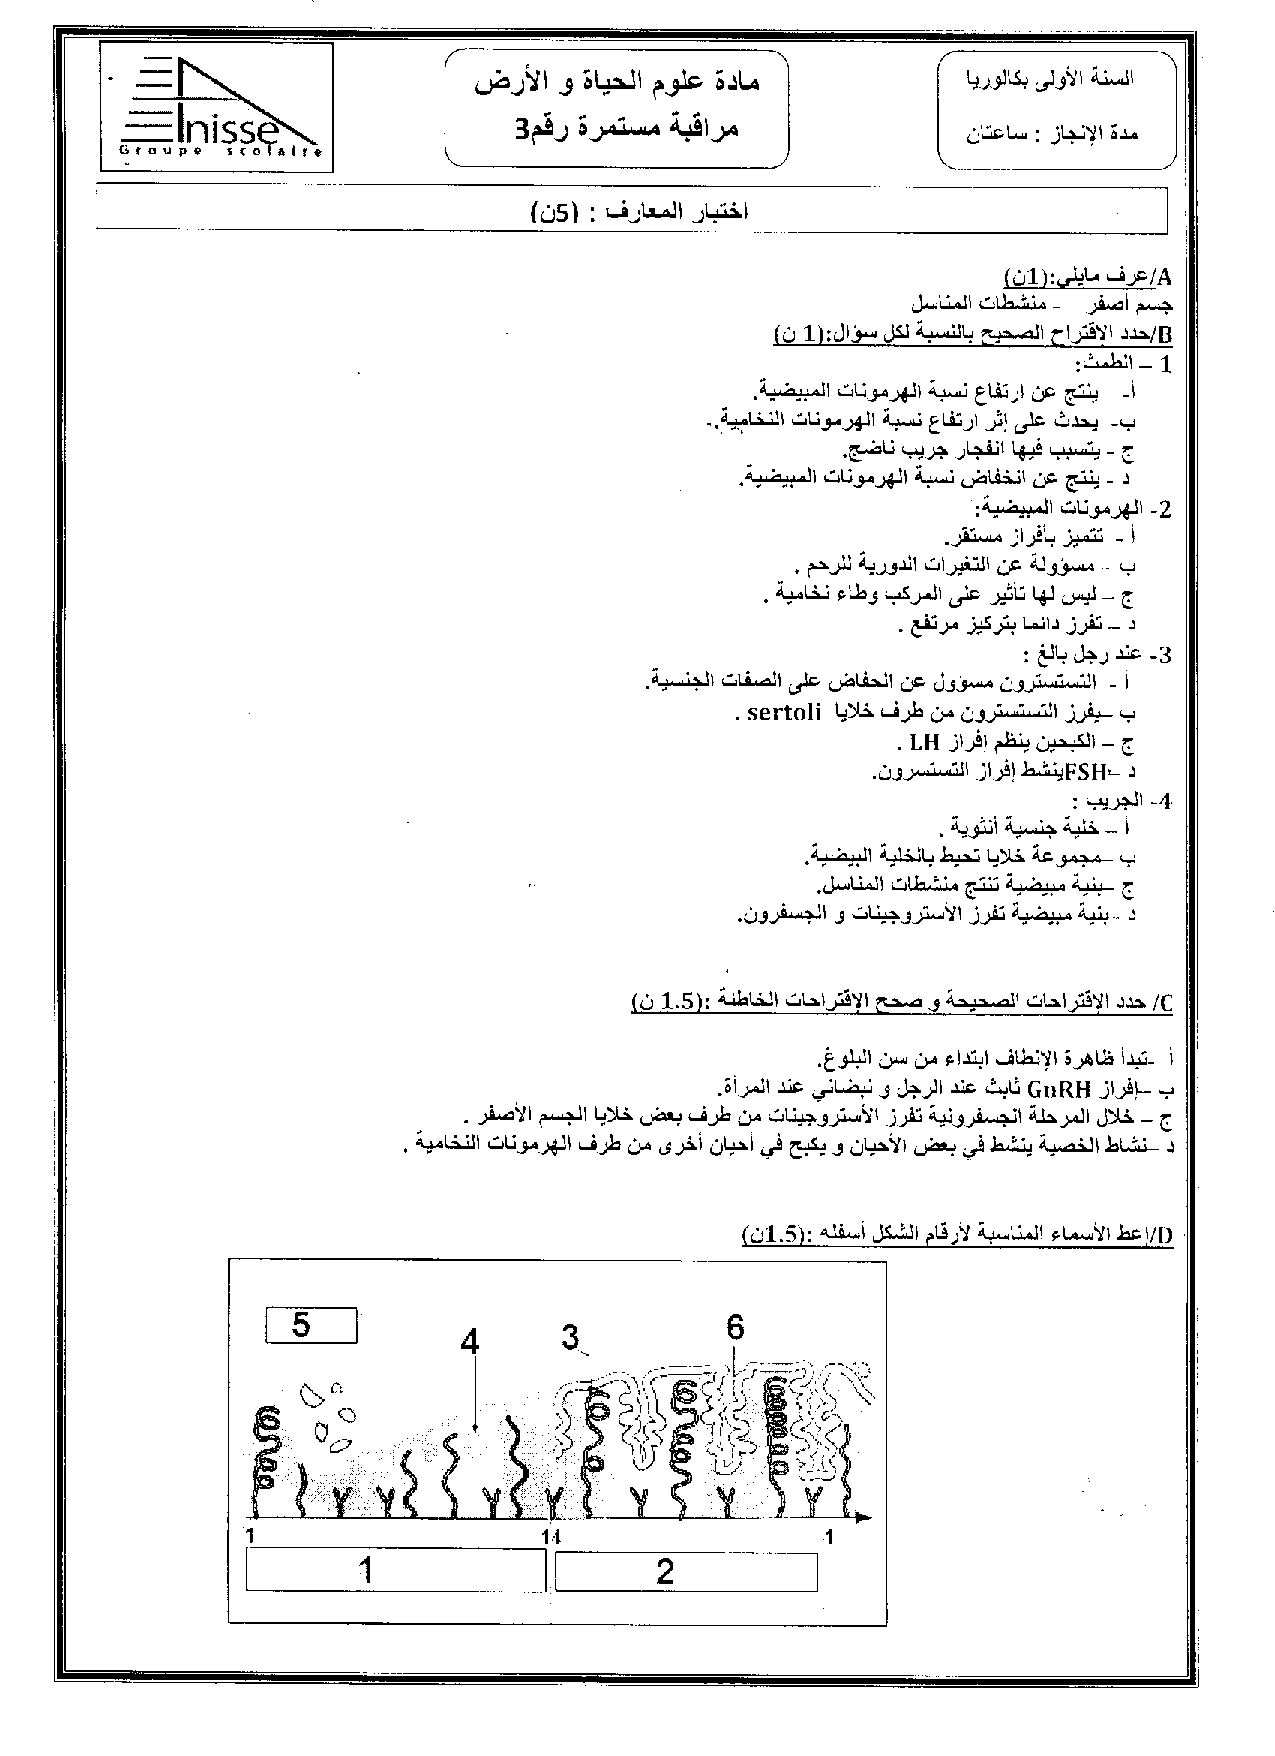 السنة الأولى بكالوريا
مدة الإنجاز : ساعتان
مادة علوم الحياة و الأرض
مراقبة مستمرة رقم3
Enisse
Groupe scolaire
اختبار المعارف : (5ن)
A/عرف مايلي:(1ن)
جسم أصفر - منشطات المناسل
B/حدد الاقتراح الصحيح بالنسبة لكل سؤال:(1 ن)
1 – الطمث:
أ- ينتج عن ارتفاع نسبة الهرمونات المبيضية.
ب- يحدث على إثر ارتفاع نسبة الهرمونات النخامية.
ج - يتسبب فيها انفجار جريب ناضج.
د - ينتج عن انخفاض نسبة الهرمونات المبيضية.
2- الهرمونات المبيضية:
أ - تتميز بأفراز مستقر.
ب - مسؤولة عن التغيرات الدورية للرحم .
ج – ليس لها تأثير على المركب وطاء نخامية .
د – تفرز دائما بتركيز مرتفع .
3- عند رجل بالغ :
أ - التستسترون مسؤول عن الحفاض على الصفات الجنسية.
ب –يفرز التستسترون من طرف خلايا sertoli .
ج – الكبحين ينظم افراز LH .
د –FSHينشط إفراز التستسرون.
4- الجريب :
أ – خلية جنسية أنثوية .
ب –مجموعة خلايا تحيط بالخلية البيضية.
ج –بنية مبيضية تنتج منشطات المناسل.
د – بنية مبيضية تفرز الأستروجينات و الجسفرون.
C/ حدد الاقتراحات الصحيحة و صحح الإقتراحات الخاطئة :(1.5 ن)
أ -تبدأ ظاهرة الإنطاف ابتداء من سن البلوغ.
ب –إفراز GnRH ثابث عند الرجل و نبضاني عند المرأة.
ج – خلال المرحلة الجسفرونية تفرز الأستروجينات من طرف بعض خلايا الجسم الأصفر .
د –نشاط الخصية ينشط في بعض الأحيان و يكبح في أحيان أخرى من طرف الهرمونات النخامية .
D/اعط الأسماء المناسبة لأرقام الشكل أسفله :(1.5ن)
5
4
3
6
1
14
1
1
2